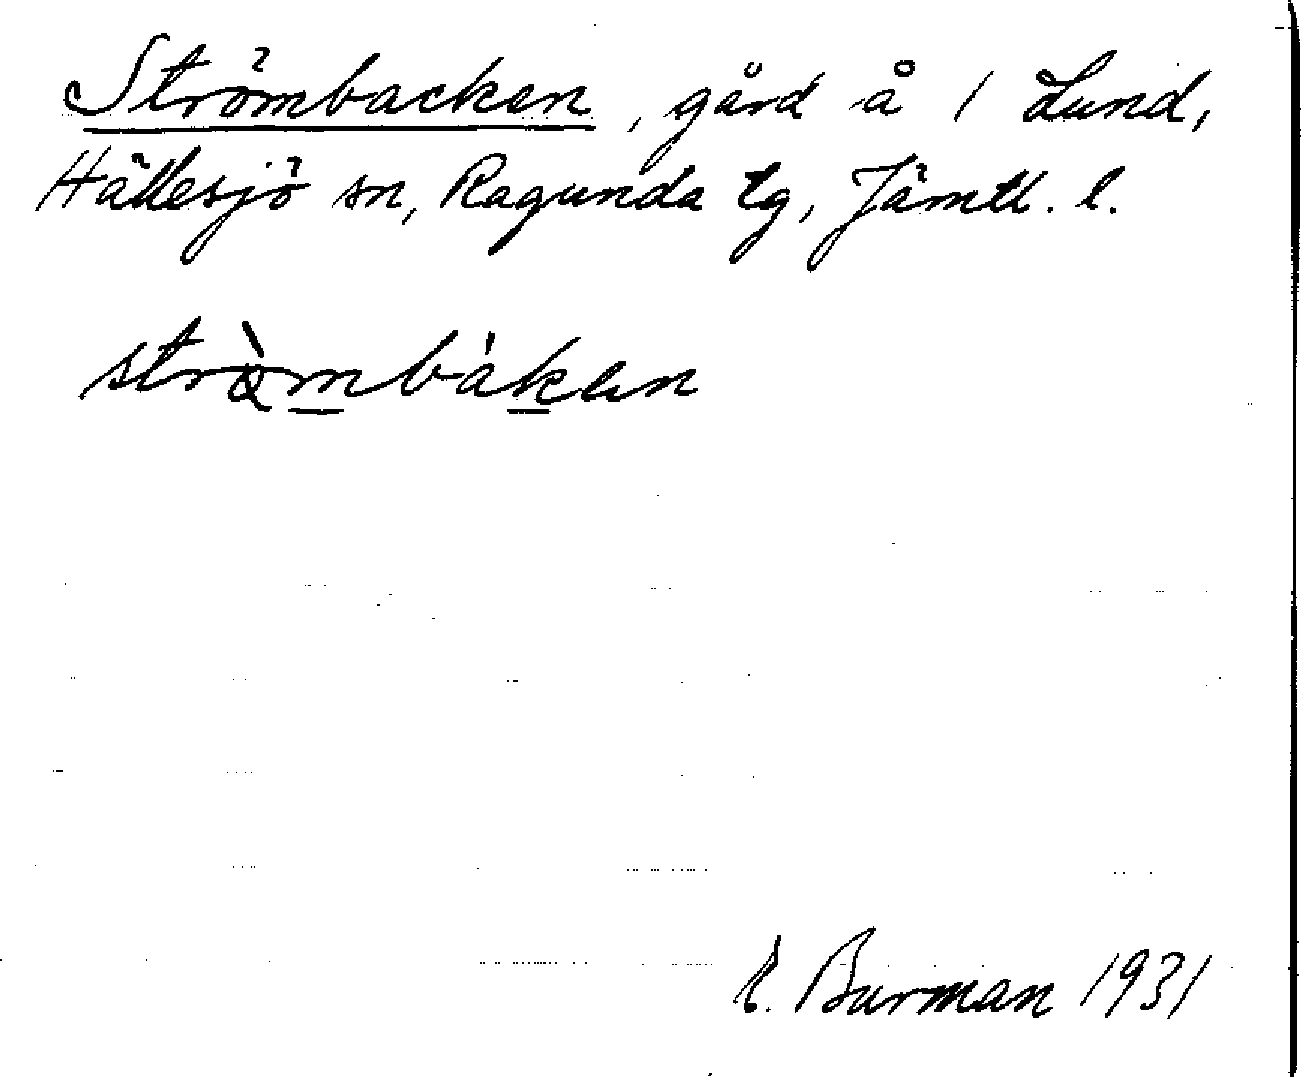 Strömbacken, gård å 1 Lund,
Hällesjö sn, Ragunda tg, Jämtl. l.
strǫ̀mbákən
E. Burman 1931